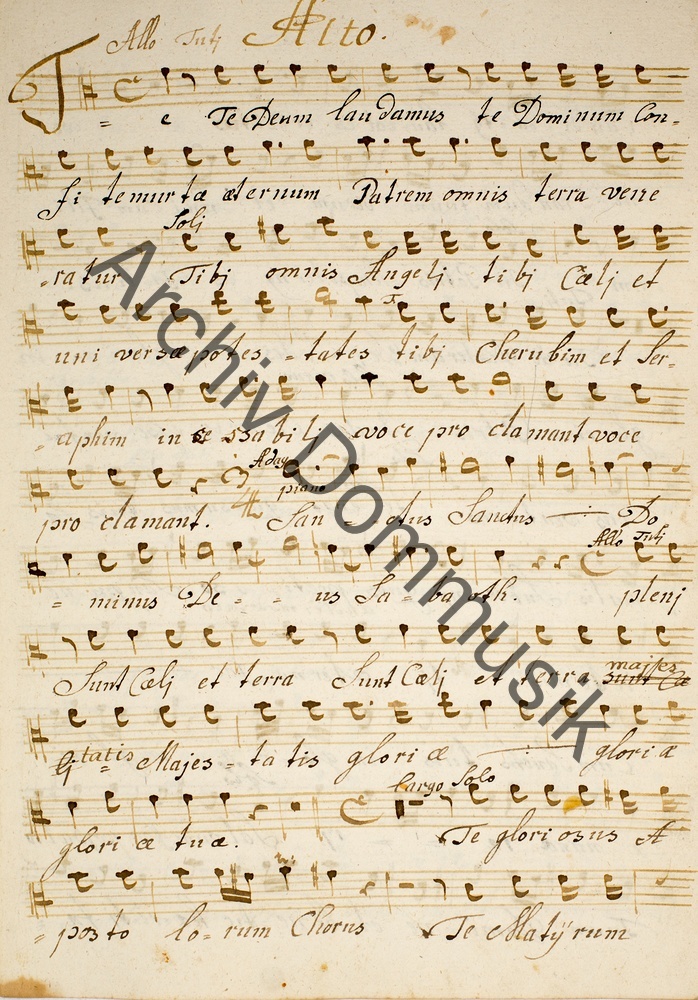 Allo Tutj Alto.
Te Te Deum laudamus te Dominum Con-
fi temur tæ æternum Patrem omnis terra vene
Solj
-ratur Tibj omnis Angelj tibj Cælj et
T
uni versæ potes-tates tibj Cherubim et Ser-
-aphim in se ssa bi lj voce pro clamant voce
Adag
piano
pro clamant. San-ctus Sanctus Do
Allo Tutj
-minus De--us Sa-ba oth. plenj
Sunt Cælj et terra Sunt Cælj et terra majes
lj tatis Majes-ta tis glori æ gloriæ
Largo Solo
glori æ tuæ. Te gloriosus A
-posto lo-rum Chorus Te Matÿrum
Archiv Dommusik